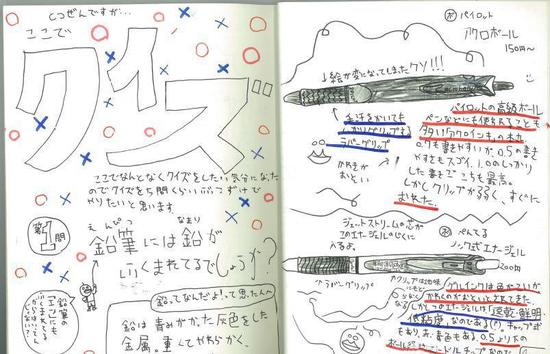 とつぜんですが…
ここで
クイズ
ここでなんとなくクイズをしたい気分になった
のでクイズを5問くらいぶっつずけで
やりたいと思います
第1問
えんぴつ
なまり
鉛筆には鉛が
ふくまれてるでしょうか?
鉛ってなんだよ!って思た人へ
鉛は青みがかた灰色をした
金属。重くてやわらかく
ボ パイロット
アクロボール
150円〜
↓絵が変になってしまったクソ!!!
手汗をかいても
しっかりグリップする
ラバーグリップ
かわきが
おそい
パイロットの高級ボール
ペンなどにも使われることも
多い「アクロインキ」の本丸
0.7も書きやすいが、0.5の書き
やすさもスゴイ。1.0のしっかり
した書きごこちも最高。
しかしクリップが弱く、すぐに
おれた。
ジェットストリームの芯が
このエナージェルのじくに
入るよ。
ボ ぺんてる
ノック式エナージェル
200円
ラバーグリップ
クリップは
ゲルインクは色がこいが
かわくのがおそいとされてきた
しかしこのエナージェルは「速乾・鮮明・
低粘度」なのである(?)。チャップボ
もあり、赤、青色もある。0.5より下の